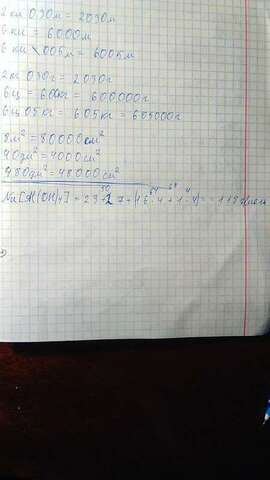 2 км 030м = 2030м
6 км = 6000м
6 км 005м = 6005м
2 кг 030г = 2030г
6ц = 600кг = 600000г
6ц 05 кг = 605кг = 605000г
8м² = 80000см²
40дм² = 4000см²
480дм² = 48000см²
Na[Al(OH)4] = 23+27+(16·4+1·4) = 118